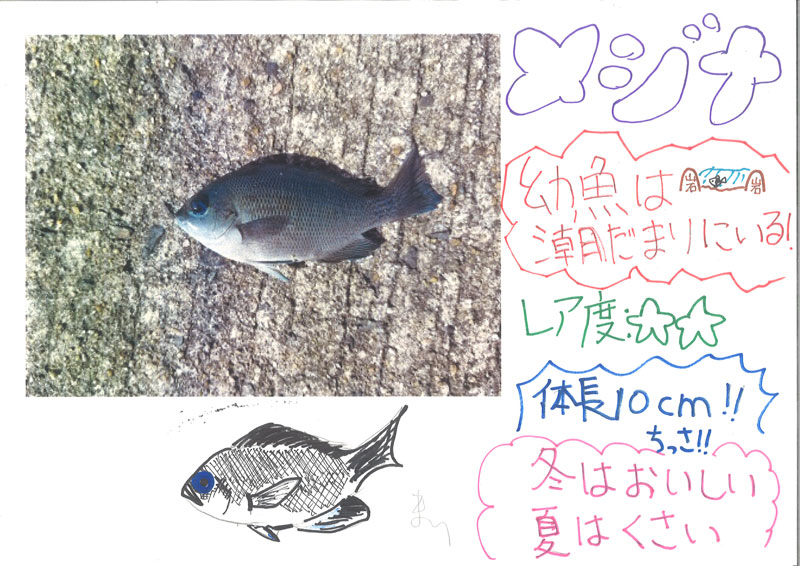 メジナ
幼魚は
岩 岩
潮だまりにいる!
レア度:☆☆
体長10cm!!
ちっさ!!
冬はおいしい
夏はくさい